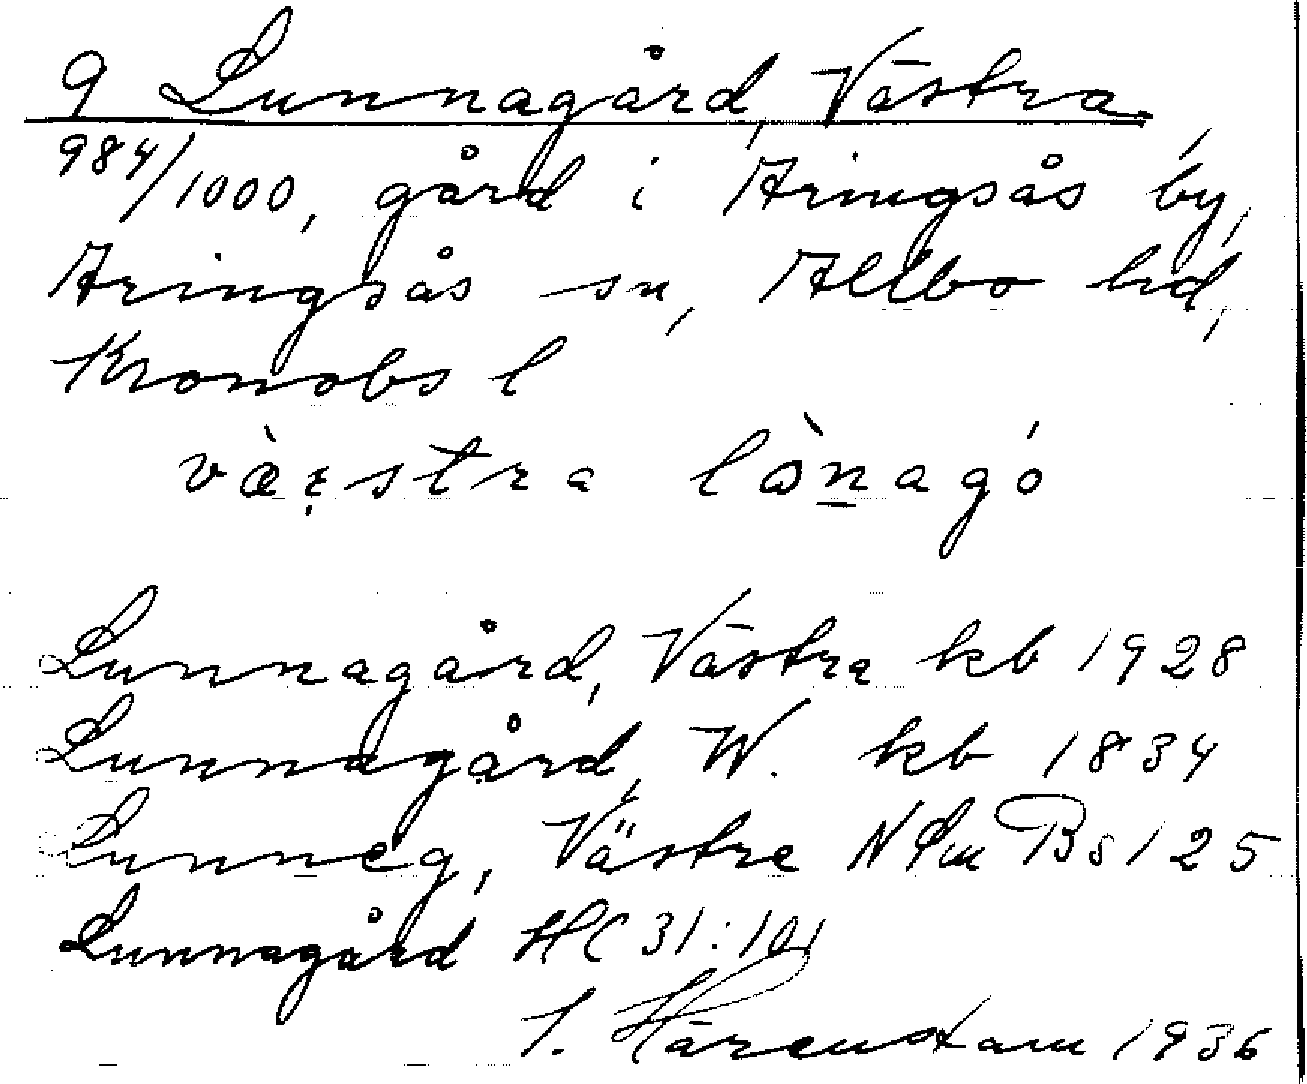 9 Lunnagård, Västra
984/1000, gård i Aringsås by,
Aringsås sn, Allbo hd,
Kronobs l
Lunnagård, Västra kb 1928
Lunnagård, W. kb 1834
Lunneg, Västre
Lunnagård HC 31:101
1936